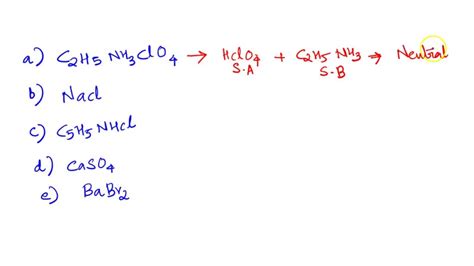 a) C₂H₅ NH₃ClO₄ → HClO₄ + C₂H₅ NH₃ → Neutral
S.A S.B
b) Nacl
c) C₅H₅NHCl
d) CaSO₄
e) BaBr₂